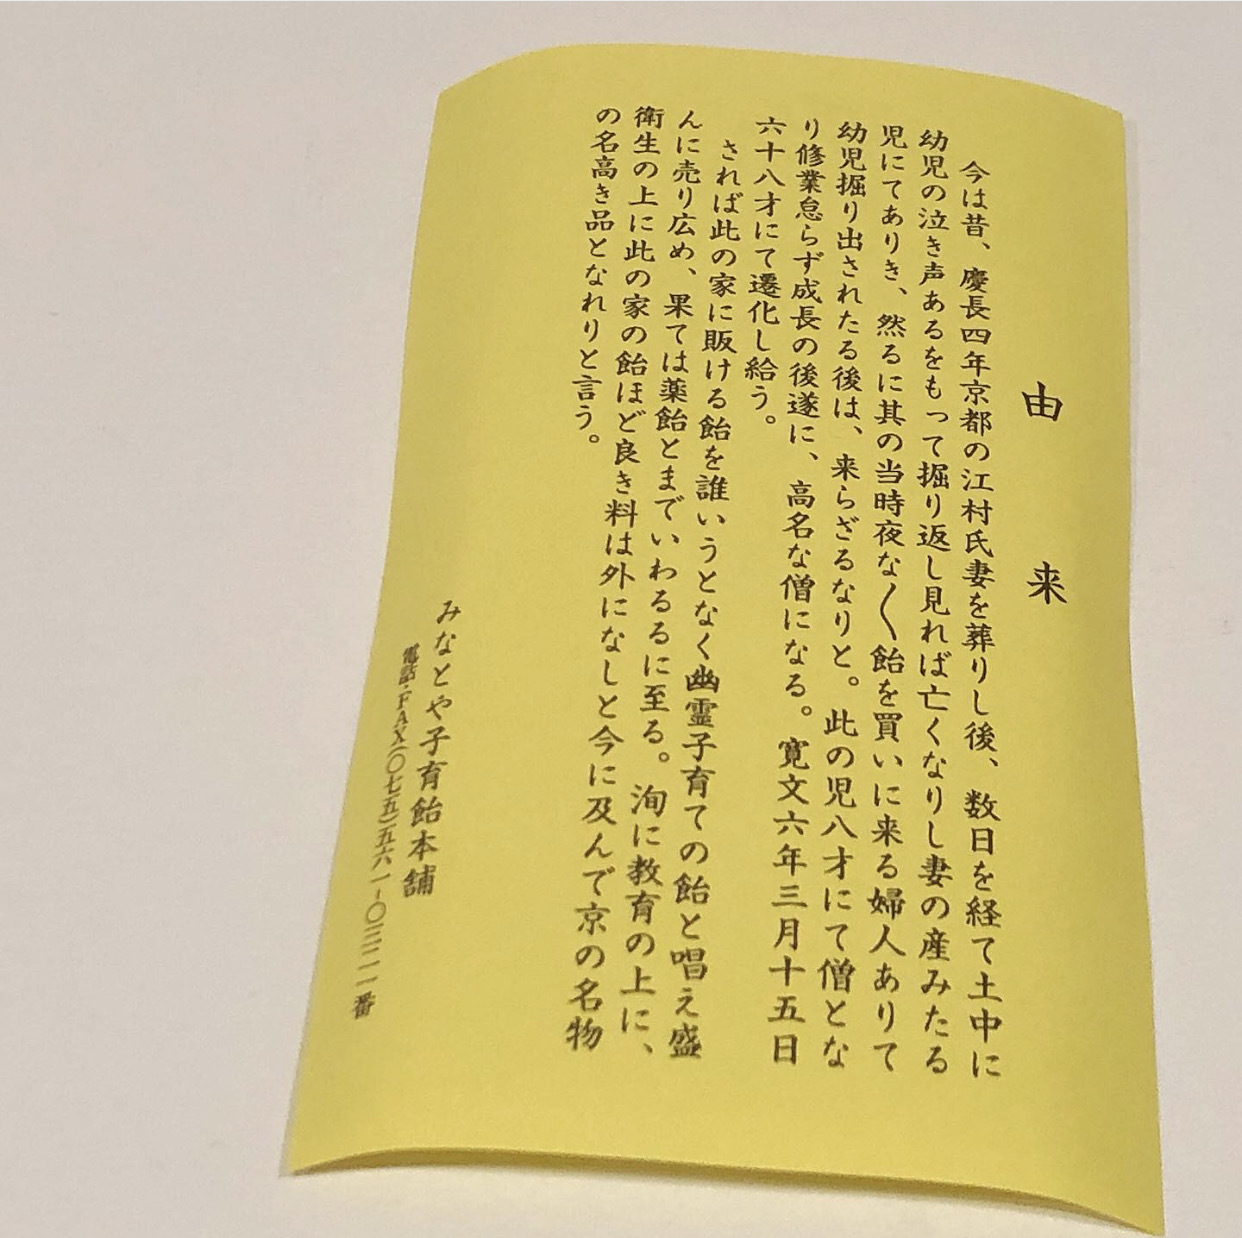 由来
今は昔、慶長四年京都の江村氏妻を葬りし後、数日を経て土中に
幼児の泣き声あるをもって掘り返し見れば亡くなりし妻の産みたる
児にてありき、然るに其の当時夜な〱飴を買いに来る婦人ありて
幼児掘り出されたる後は、来らざるなりと。此の児八才にて僧とな
り修業怠らず成長の後遂に、高名な僧になる。寛文六年三月十五日
六十八才にて遷化し給う。
されば此の家に販ける飴を誰いうとなく幽霊子育ての飴と唱え盛
んに売り広め、果ては薬飴とまでいわるるに至る。洵に教育の上に、
衛生の上に此の家の飴ほど良き料は外になしと今に及んで京の名物
の名高き品となれりと言う。
みなとや子育飴本舗
電話・FAX(〇七五)五六一-〇三二一番